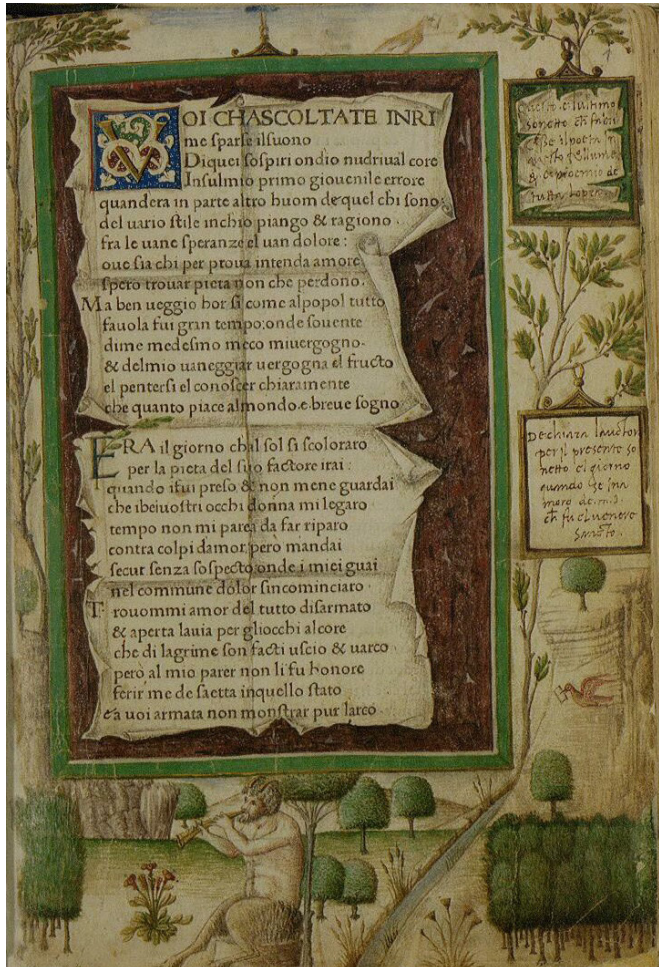 VOI CHASCOLTATE INRI
me sparse ilsuono
Diquei sospiri ondio nudriual core
Insulmio primo giouenile errore
quandera in parte altro huom dequel chi sono:
del uario stile inchio piango & ragiono.
fra le uane speranze el uan dolore:
oue sia chi per proua intenda amore
spero trouar pieta non che perdono.
Ma ben ueggio hor si come alpopol tutto
fauola fui gran tempo: onde souente
dime medesmo meco miuergogno.
& delmio uaneggiar uergogna el fructo
el pentersi el conoscer chiaramente
che quanto piace almondo. e. breue sogno
ERA il giorno chal sol si scoloraro
per la pieta del suo factore irai:
quando ifui preso & non mene guardai
che ibeiuostri occhi donna mi legaro
tempo non mi parea da far riparo
contra colpi damor: pero mandai
secur senza sospecto: onde i miei guai
nel commune dolor sincominciaro.
Trouommi amor del tutto disarmato
& aperta lauia per gliocchi alcore
che di lagrime son facti uscio & uarco.
pero al mio parer non li fu honore
ferir me de saetta inquello stato
& a voi armata non monstrar pur larco.
Questo e lultimo
sonetto
il poeta in
questo
proemio de
tutta lopera
Dechiara lauctor
per il presente so
netto el giorno
quando se inna
moro
fu el uenere
sancto.